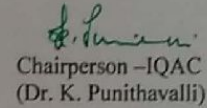 Chairperson –IQAC
(Dr. K. Punithavalli)